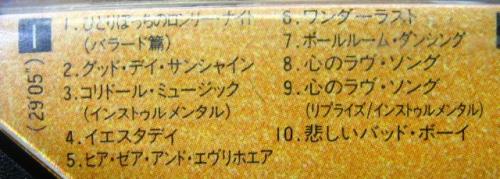 I
(29'05")
1. ひとりぼっちのロンリー・ナイト
(バラード篇)
2. グッド・デイ・サンシャイン
3. コリドール・ミュージック
(インストゥルメンタル)
4. イエスタデイ
5. ヒア・ゼア・アンド・エヴリホエア
6. ワンダーラスト
7. ボールルーム・ダンシング
8. 心のラヴ・ソング
9. 心のラヴ・ソング
(リプライズ/インストゥルメンタル)
10. 悲しいバッド・ボーイ